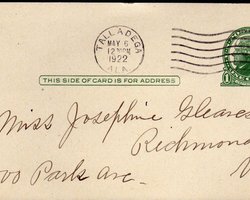 TALLADEGA
MAY 6
12 30 PM
1922
ALA.
THIS SIDE OF CARD IS FOR ADDRESS
1
Miss Josephine Gleares
Richmond
00 Park Ave.